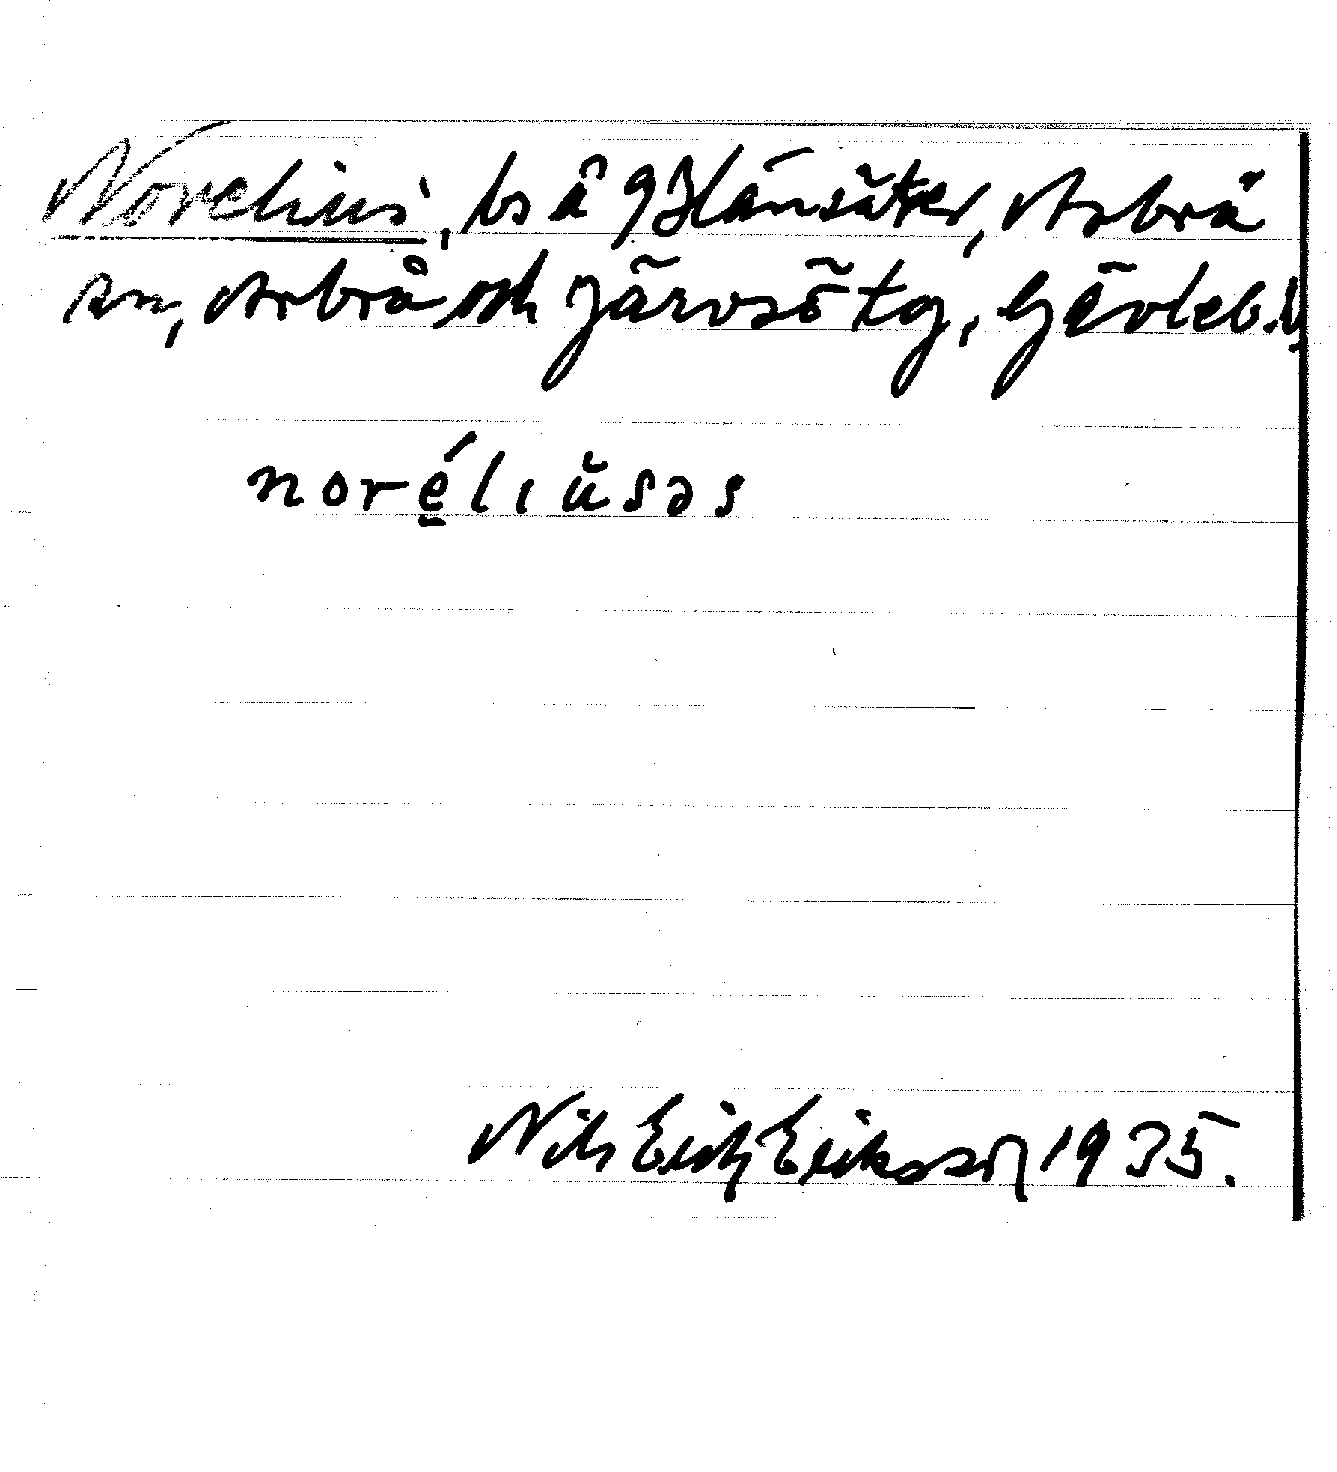 Norelius, bs å 9 Hänsäter, Arbrå
sn, Arbrå och Järvsö tg, Gävleb. l.
noréliŭsəs
Nils Erik Eriksson 1935.